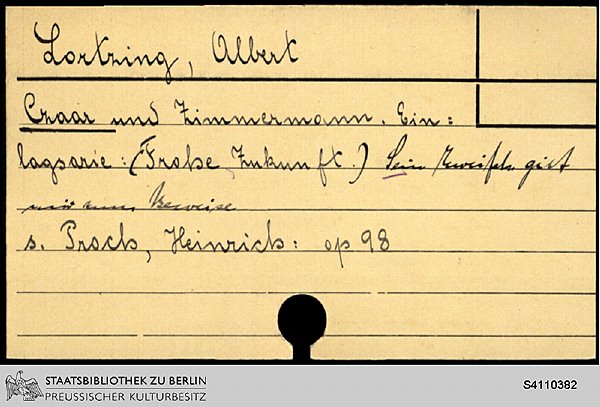 Lortzing, Albert
Czaar und Zimmermann. Ein=
lagsarie: (Frohe Zukunft.) Sein Zweifeln gibt
mir nun Beweise
s. Proch, Heinrich: op 98
STAATSBIBLIOTHEK ZU BERLIN
PREUSSISCHER KULTURBESITZ
S4110382